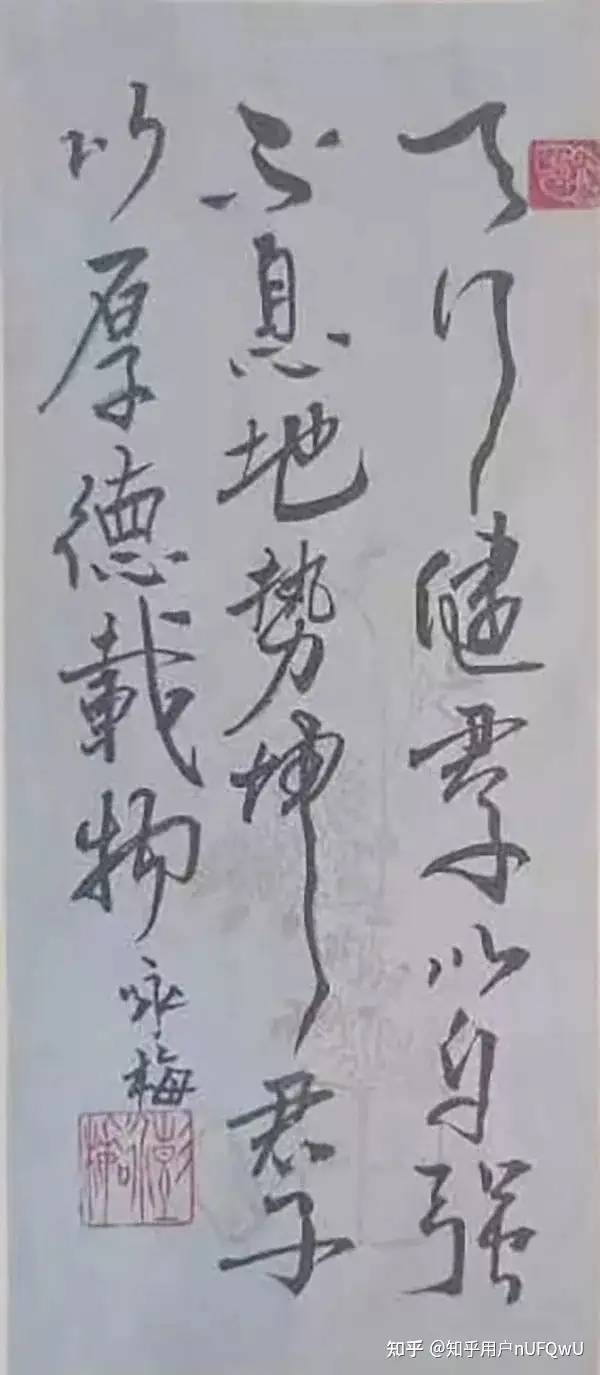 天行健君子以自强
不息地勢坤君子
以厚德載物
咏梅
知乎 @知乎用户nUFQwU